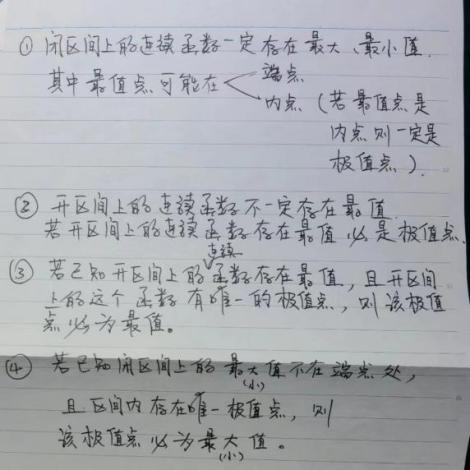 ① 闭区间上的连续函数一定存在最大、最小值.
其中最值点可能在 端点
内点 (若最值点是
内点则一定是
极值点).
② 开区间上的连续函数不一定存在最值.
若开区间上的连续函数存在最值必是极值点.
连续
③ 若已知开区间上的函数存在最值,且开区间
上的这个函数有唯一的极值点,则该极值
点必为最值。
④ 若已知闭区间上的最大值不在端点处,
(小)
且区间内存在唯一极值点,则
该极值点必为最大值。
(小)